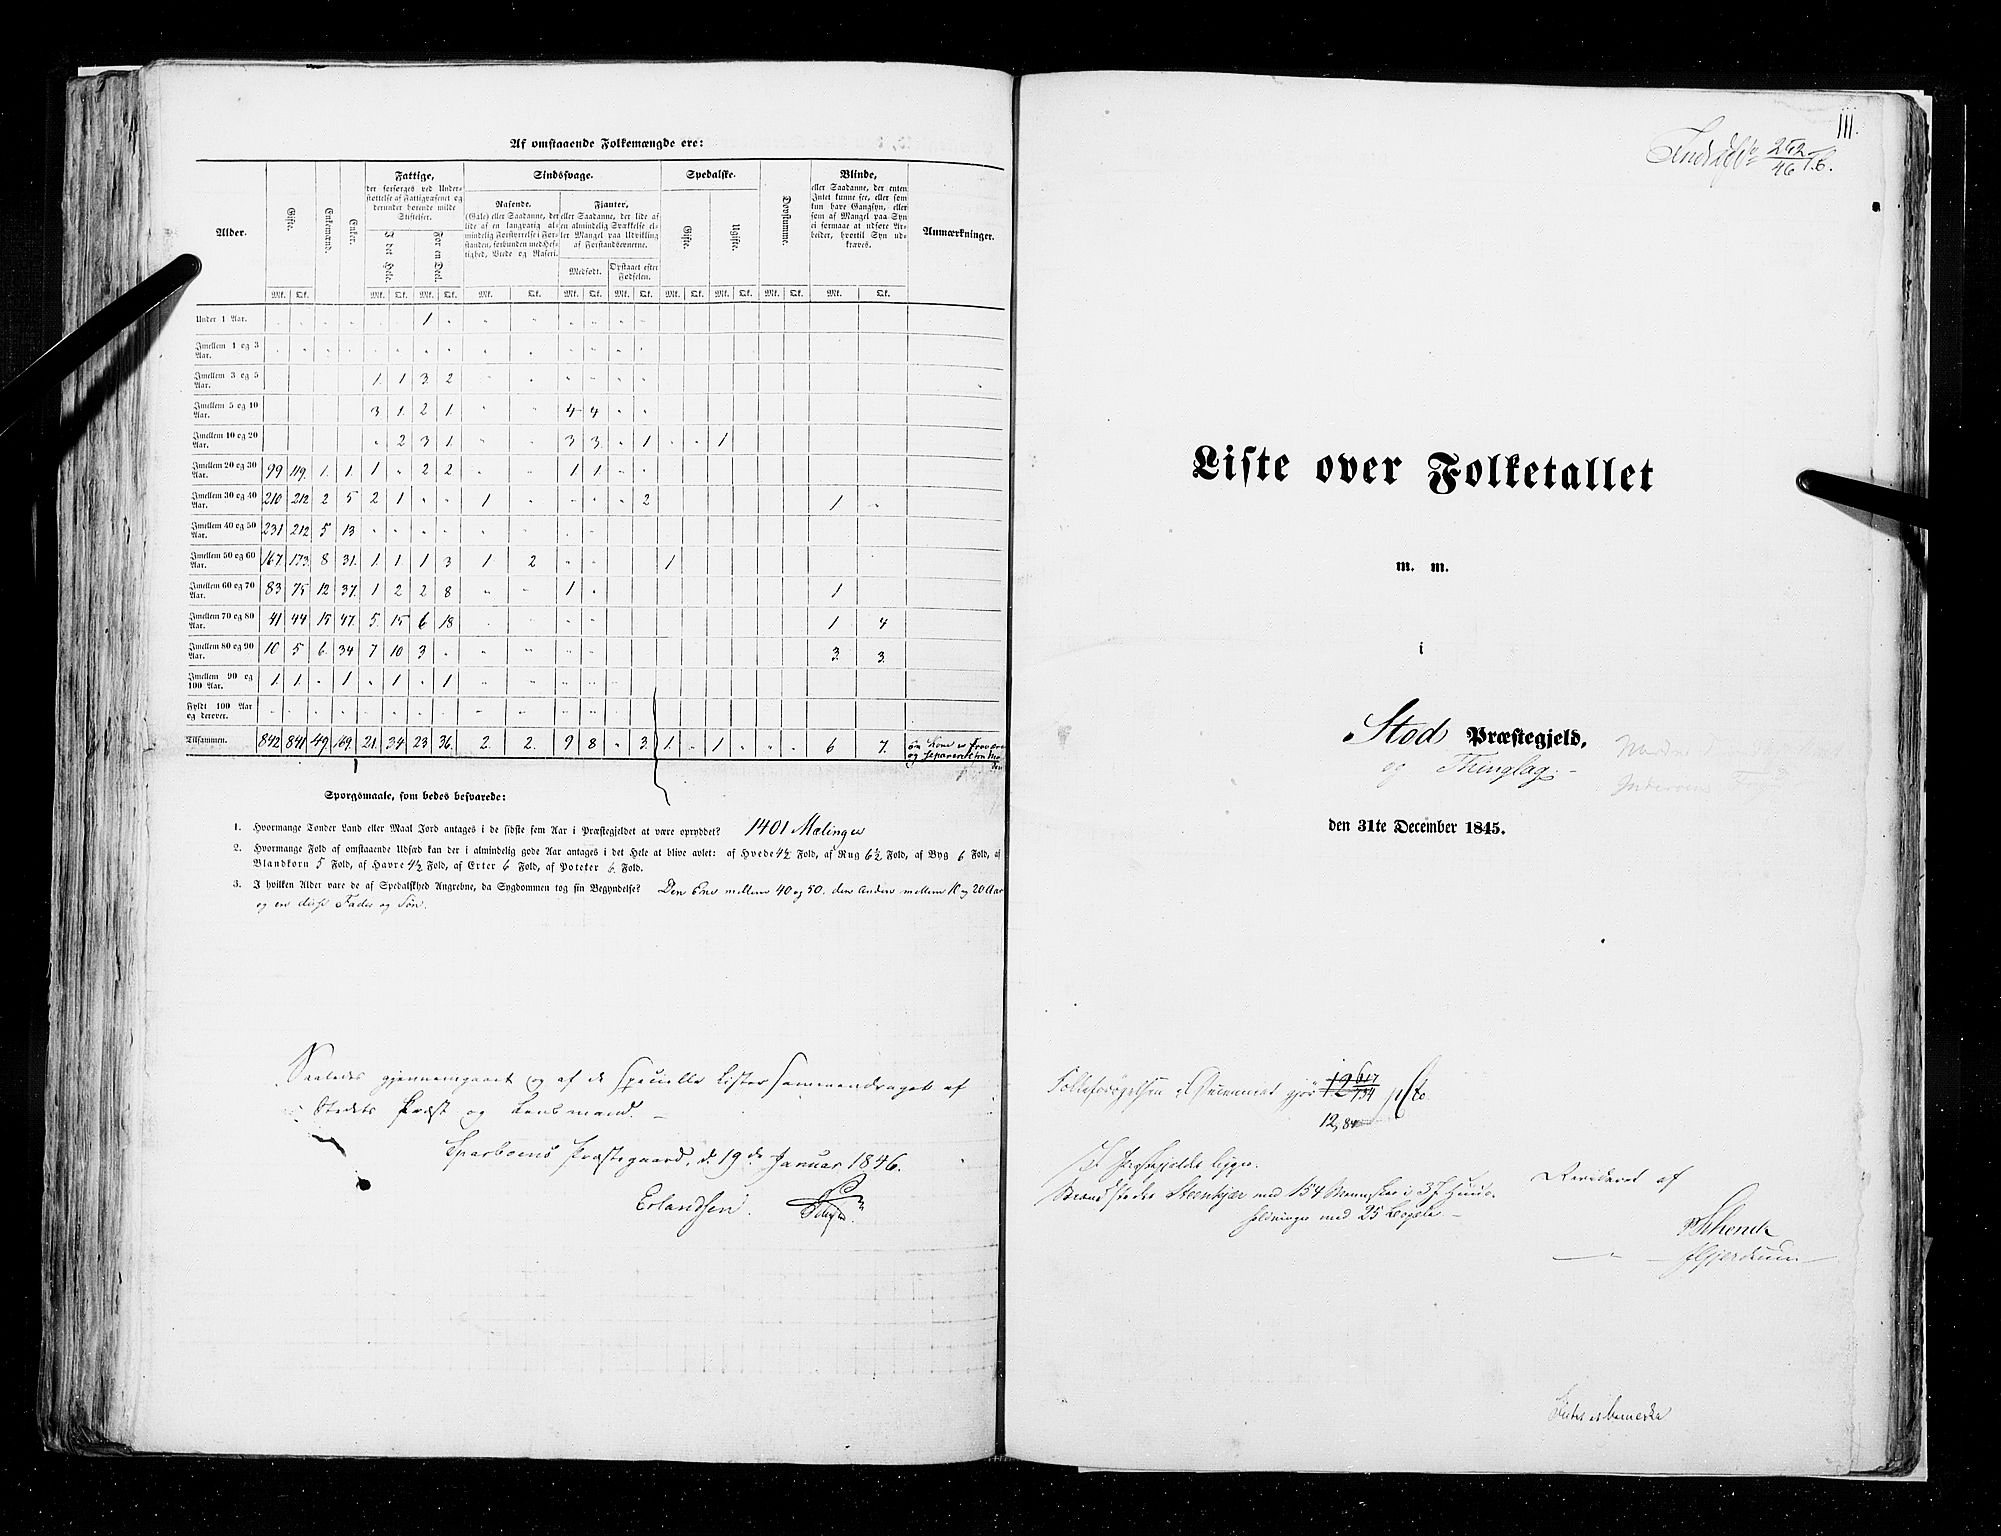 Af omstaaende Folkemængde ere:
Alder. Gifte. Enkemænd. Enker. Fattige, der forsørges ved Understøttelse af Fattigvæsenet og derunder hørende milde Stiftelser. Sindssvage. Spedalske. Døvstumme. Blinde, eller Saadanne, der enten Intet kunne see, eller kun have Gangsyn, eller som af Mangel paa Syn ei formaae at udføre Arbeider, hvortil Syn udkræves. Anmærkninger.
I det Hele. For en Deel. Rasende. (Gale) eller Saadanne, der lide af en langvarig almindelig Forstyrrelse i Forstanden, forbunden med Heftighed, Vrede og Raseri. Fjanter, eller Saadanne, der lide af en almindelig Svækkelse eller Mangel paa Udvikling af Forstandsevnerne. Gifte. Ugifte.
Medfødt. Opstaaet efter Fødselen.
Mk. Qk. Mk. Qk. Mk. Qk. Mk. Qk. Mk. Qk. Mk. Qk. Mk. Qk. Mk. Qk. Mk. Qk. Mk. Qk.
Under 1 Aar. 1
Imellem 1 og 3 Aar.
Imellem 3 og 5 Aar. 1. 1 3. 2
Imellem 5 og 10 Aar. 3 1. 2 1. 4 4
Imellem 10 og 20 Aar. 2 3 1. 3 3. 1 1
Imellem 20 og 30 Aar. 99 119. 1. 1. 1 2 2 1 1
Imellem 30 og 40 Aar. 210 212 2 5 2 1 1 2 1
Imellem 40 og 50 Aar. 231 212 5 13
Imellem 50 og 60 Aar. 167. 173. 8 31. 1. 1. 1 3 1 2 1
Imellem 60 og 70 Aar. 83 75 12 37. 1 2 2 8 1 1
Imellem 70 og 80 Aar. 41 44 15 47. 5 15 6 18 1 4
Imellem 80 og 90 Aar. 10 5 6. 34 7 10 3 3. 3.
Imellem 90 og 100 Aar. 1. 1. 1 1 1
Fyldt 100 Aar og derover.
Tilsammen. 842 841 49. 169. 21. 34 23 36. 2. 2. 9 8 3. 1. 1 6 7. en Kone er og separeret fra
Spørgsmaale, som bedes besvarede:
1. Hvormange Tønder Land eller Maal Jord antages i de sidste fem Aar i Præstegjeldet at være opryddet? 1401 Mælinger
2. Hvormange Fold af omstaaende Udsæd kan der i almindelig gode Aar antages i det Hele at blive avlet: af Hvede 4½ Fold, af Rug 6½ Fold, af Byg 6 Fold, af
Blandkorn 5 Fold, af Havre 4½ Fold, af Erter 6 Fold, af Poteter 6 Fold.
3. I hvilken Alder vare de af Spedalskhed Angrebne, da Sygdommen tog sin Begyndelse? Den Ene mellem 40 og 50. den Anden mellem 10 og 20 Aar
og ere disse Fader og Søn.
Saaledes gjennemgaaet og af de specielle Lister sammendraget af
Stedets Præst og Lensmand.
Sparboens Præstegaard, d. 19de Januar 1846.
Erlandsen.
III.
252/46
Liste over Folketallet
m. m.
i
Stod Præstegjeld,
og Thinglag
den 31te December 1845.
Folkeforøgelsen i Decenniet gjør pCt.
12,84
I Præstegjeldet ligger
Strandstedet Steenkjær med 154 Mennesker i 37 Huus-
holdninger med 25
Revideret af
Schenck
Gjerdrum